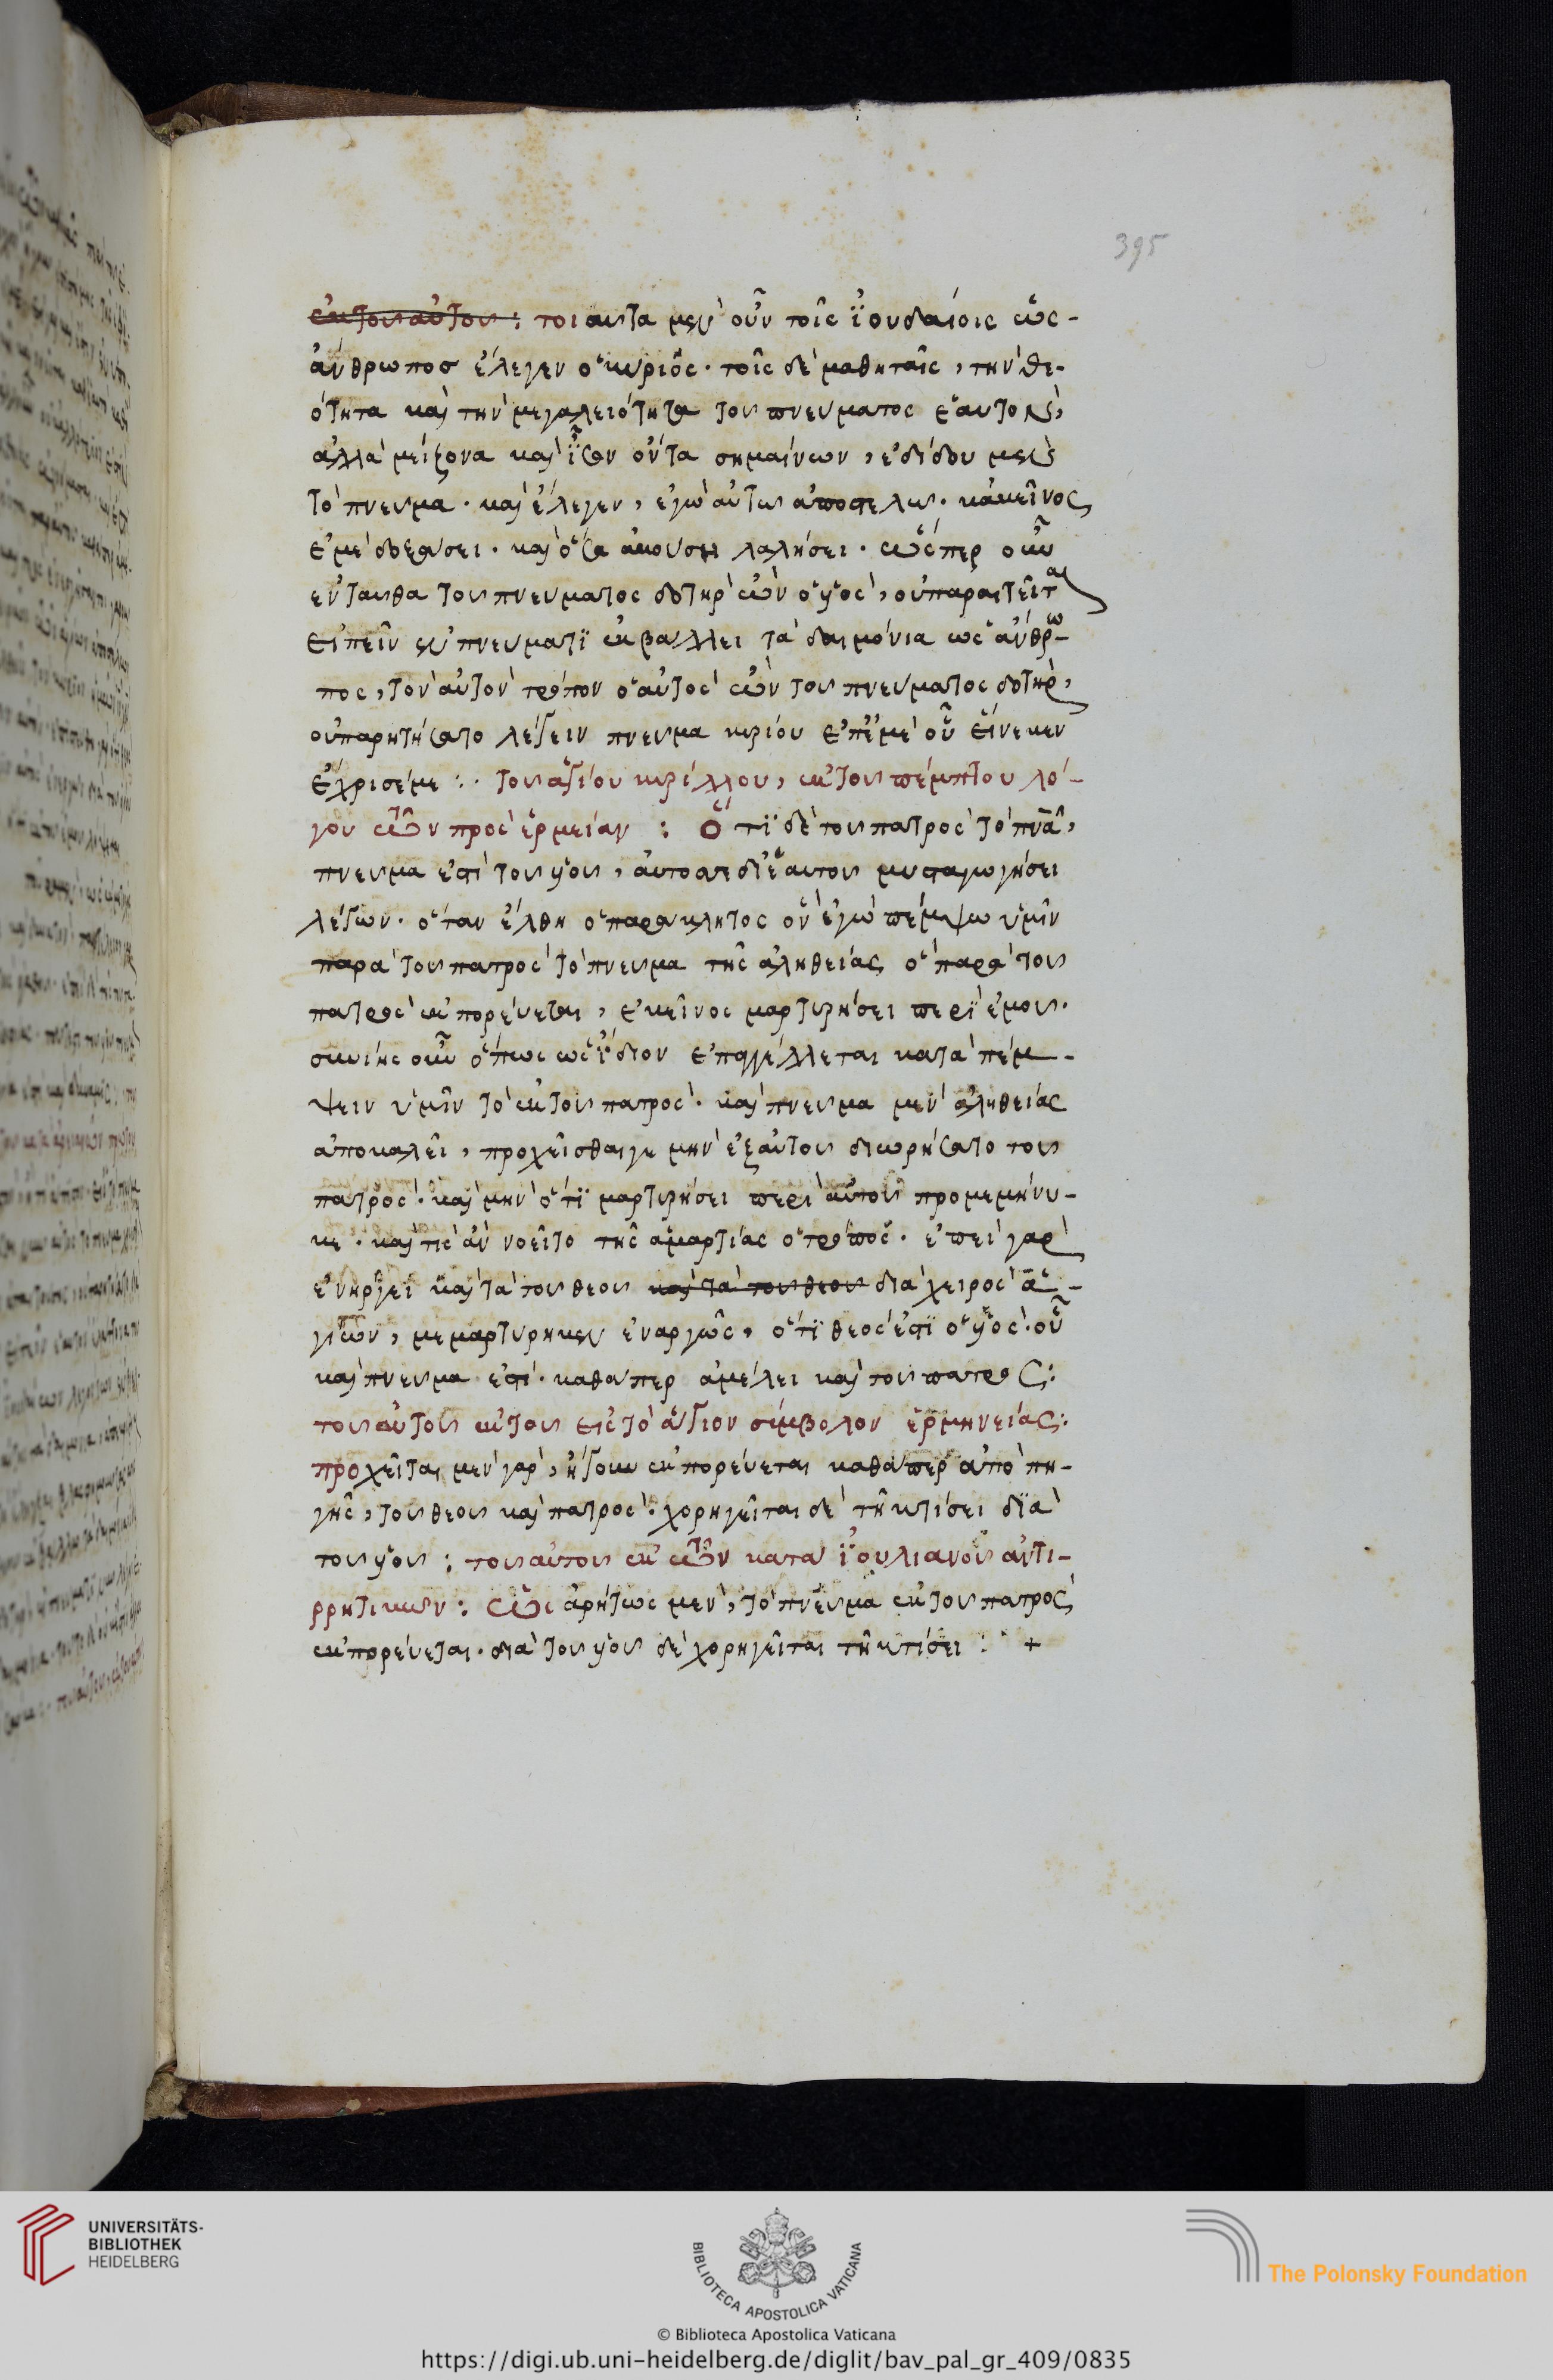 395
ἐκ τοῦ αὐτοῦ : τοιαῦτα μὲν οὖν τοῖς ϊουδαίοις ὡς -
ἄνθρωπος ἔλεγεν ὁ κύριος · τοῖς δὲ μαθηταῖς, τὴν θε-
ότητα καὶ τὴν μεγαλειότητα τοῦ πνεύματος ἑαυτοῦ,
ἀλλὰ μείζονα καὶ ἴσον ὄντα σημαίνων, ἐδίδου μὲν
τὸ πνεῦμα · καὶ ἔλεγεν, ἐγὼ αὐτὸ ἀποστελῶ · κἀκεῖνος
ἐμὲ δοξάσει · καὶ ὅσα ἀκούσει λαλήσει · ὥσπερ οὖν
ἐνταῦθα τοῦ πνεύματος δοτὴρ ὢν ὁ υἱὸς, οὐ παραιτεῖται
εἰπεῖν ἐν πνεύματϊ ἐκβάλλει τὰ δαιμόνια ὡς ἄνθρω-
πος, τὸν αὐτὸν τρόπον ὁ αὐτὸς ὢν τοῦ πνεύματος δοτὴρ,
οὐ παρητήσατο λέγειν πνεῦμα κυρίου ἐπ' ἐμὲ οὗ εἵνεκεν
ἔχρισέ με :· τοῦ ἁγίου κυρίλλου, ἐκ τοῦ πέμπτου λό-
γου τῶν πρὸς ἑρμείαν : Ὅτϊ δὲ τοῦ πατρὸς τὸ πνα,
πνεῦμα ἐστὶ τοῦ υἱοῦ, αὐτὸς δι' ἑαυτοῦ μυσταγωγήσει
λέγων · ὅταν ἔλθη ὁ παράκλητος ὃν ἐγὼ πέμψω ὑμῖν
παρὰ τοῦ πατρὸς τὸ πνεῦμα τῆς ἀληθείας ὃ παρὰ τοῦ
πατρὸς ἐκπορεύεται, ἐκεῖνος μαρτυρήσει περὶ ἐμοῦ ·
συνίης οὖν ὅπως ὡς ἴδιον ἐπαγγέλλεται καταπέμ-
ψειν ὑμῖν τὸ ἐκ τοῦ πατρὸς · καὶ πνεῦμα μὲν ἀληθείας
ἀποκαλεῖ, προχεῖσθαι γε μὴν ἐξ αὐτοῦ διωρήσατο τοῦ
πατρὸς · καὶ μὴν ὅτϊ μαρτυρήσει περὶ αὐτοῦ προμεμήνυ-
κε · καὶ τίς ἂν νοεῖτο τῆς ἁμαρτίας ὁ τρόπος · ἐπεὶ γὰρ
ἐνήργει καὶ τὰ τοῦ θεοῦ καὶ τὰ τοῦ θεοῦ διὰ χειρὸς ἁ-
γίων, μεμαρτύρηκεν ἐναργῶς, ὅτϊ θεός ἐστϊ ὁ υἱὸς · οὗ
καὶ πνεῦμα ἐστὶ · καθάπερ ἀμέλει καὶ τοῦ πατρός :
τοῦ αὐτοῦ ἐκ τοῦ εἰς τὸ ἅγιον σύμβολον ἑρμηνείας :
προχεῖται μὲν γὰρ, ἤγουν ἐκπορεύεται καθάπερ ἀπὸ πη-
γῆς, τοῦ θεοῦ καὶ πατρὸς : χορηγεῖται δὲ τῆ κτίσει διὰ
τοῦ υἱοῦ : τοῦ αὐτοῦ ἐκ τῶν κατὰ ϊουλιανοῦ ἀντι-
ρρητικῶν : Ὡς ἀρήτως μὲν, τὸ πνεῦμα ἐκ τοῦ πατρὸς
ἐκπορεύεται · διὰ τοῦ υἱοῦ δὲ χορηγεῖται τῆ κτίσει : +
UNIVERSITÄTS-
BIBLIOTHEK
HEIDELBERG
BIBLIOTECA APOSTOLICA VATICANA
The Polonsky Foundation
© Biblioteca Apostolica Vaticana
https://digi.ub.uni-heidelberg.de/diglit/bav_pal_gr_409/0835